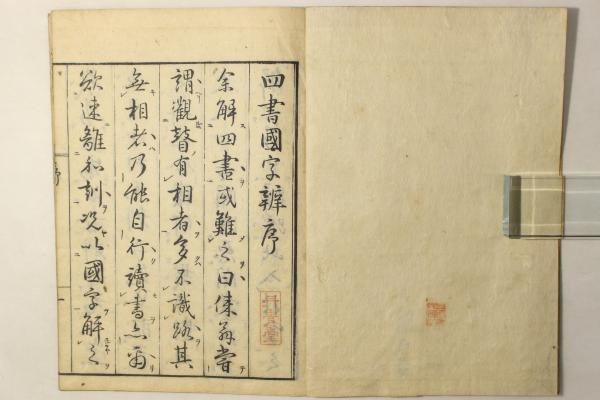 四書國字辨序
余解四書或難之曰徠翁嘗
謂觀瞽有相者多不識路其
無相者乃能自行讀書亦爾
欲速離和訓況以國字解之
序